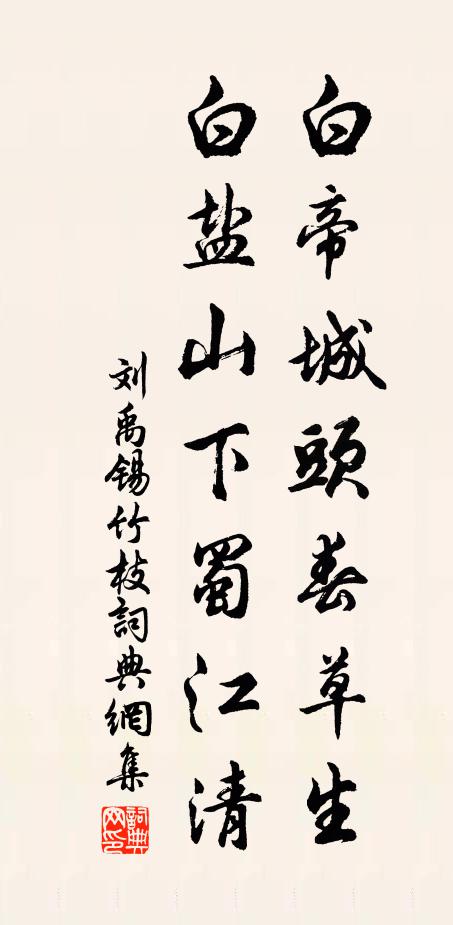 白帝城頭春草生
白盐山下蜀江清
刘禹锡竹枝詞典網集
詞典網印